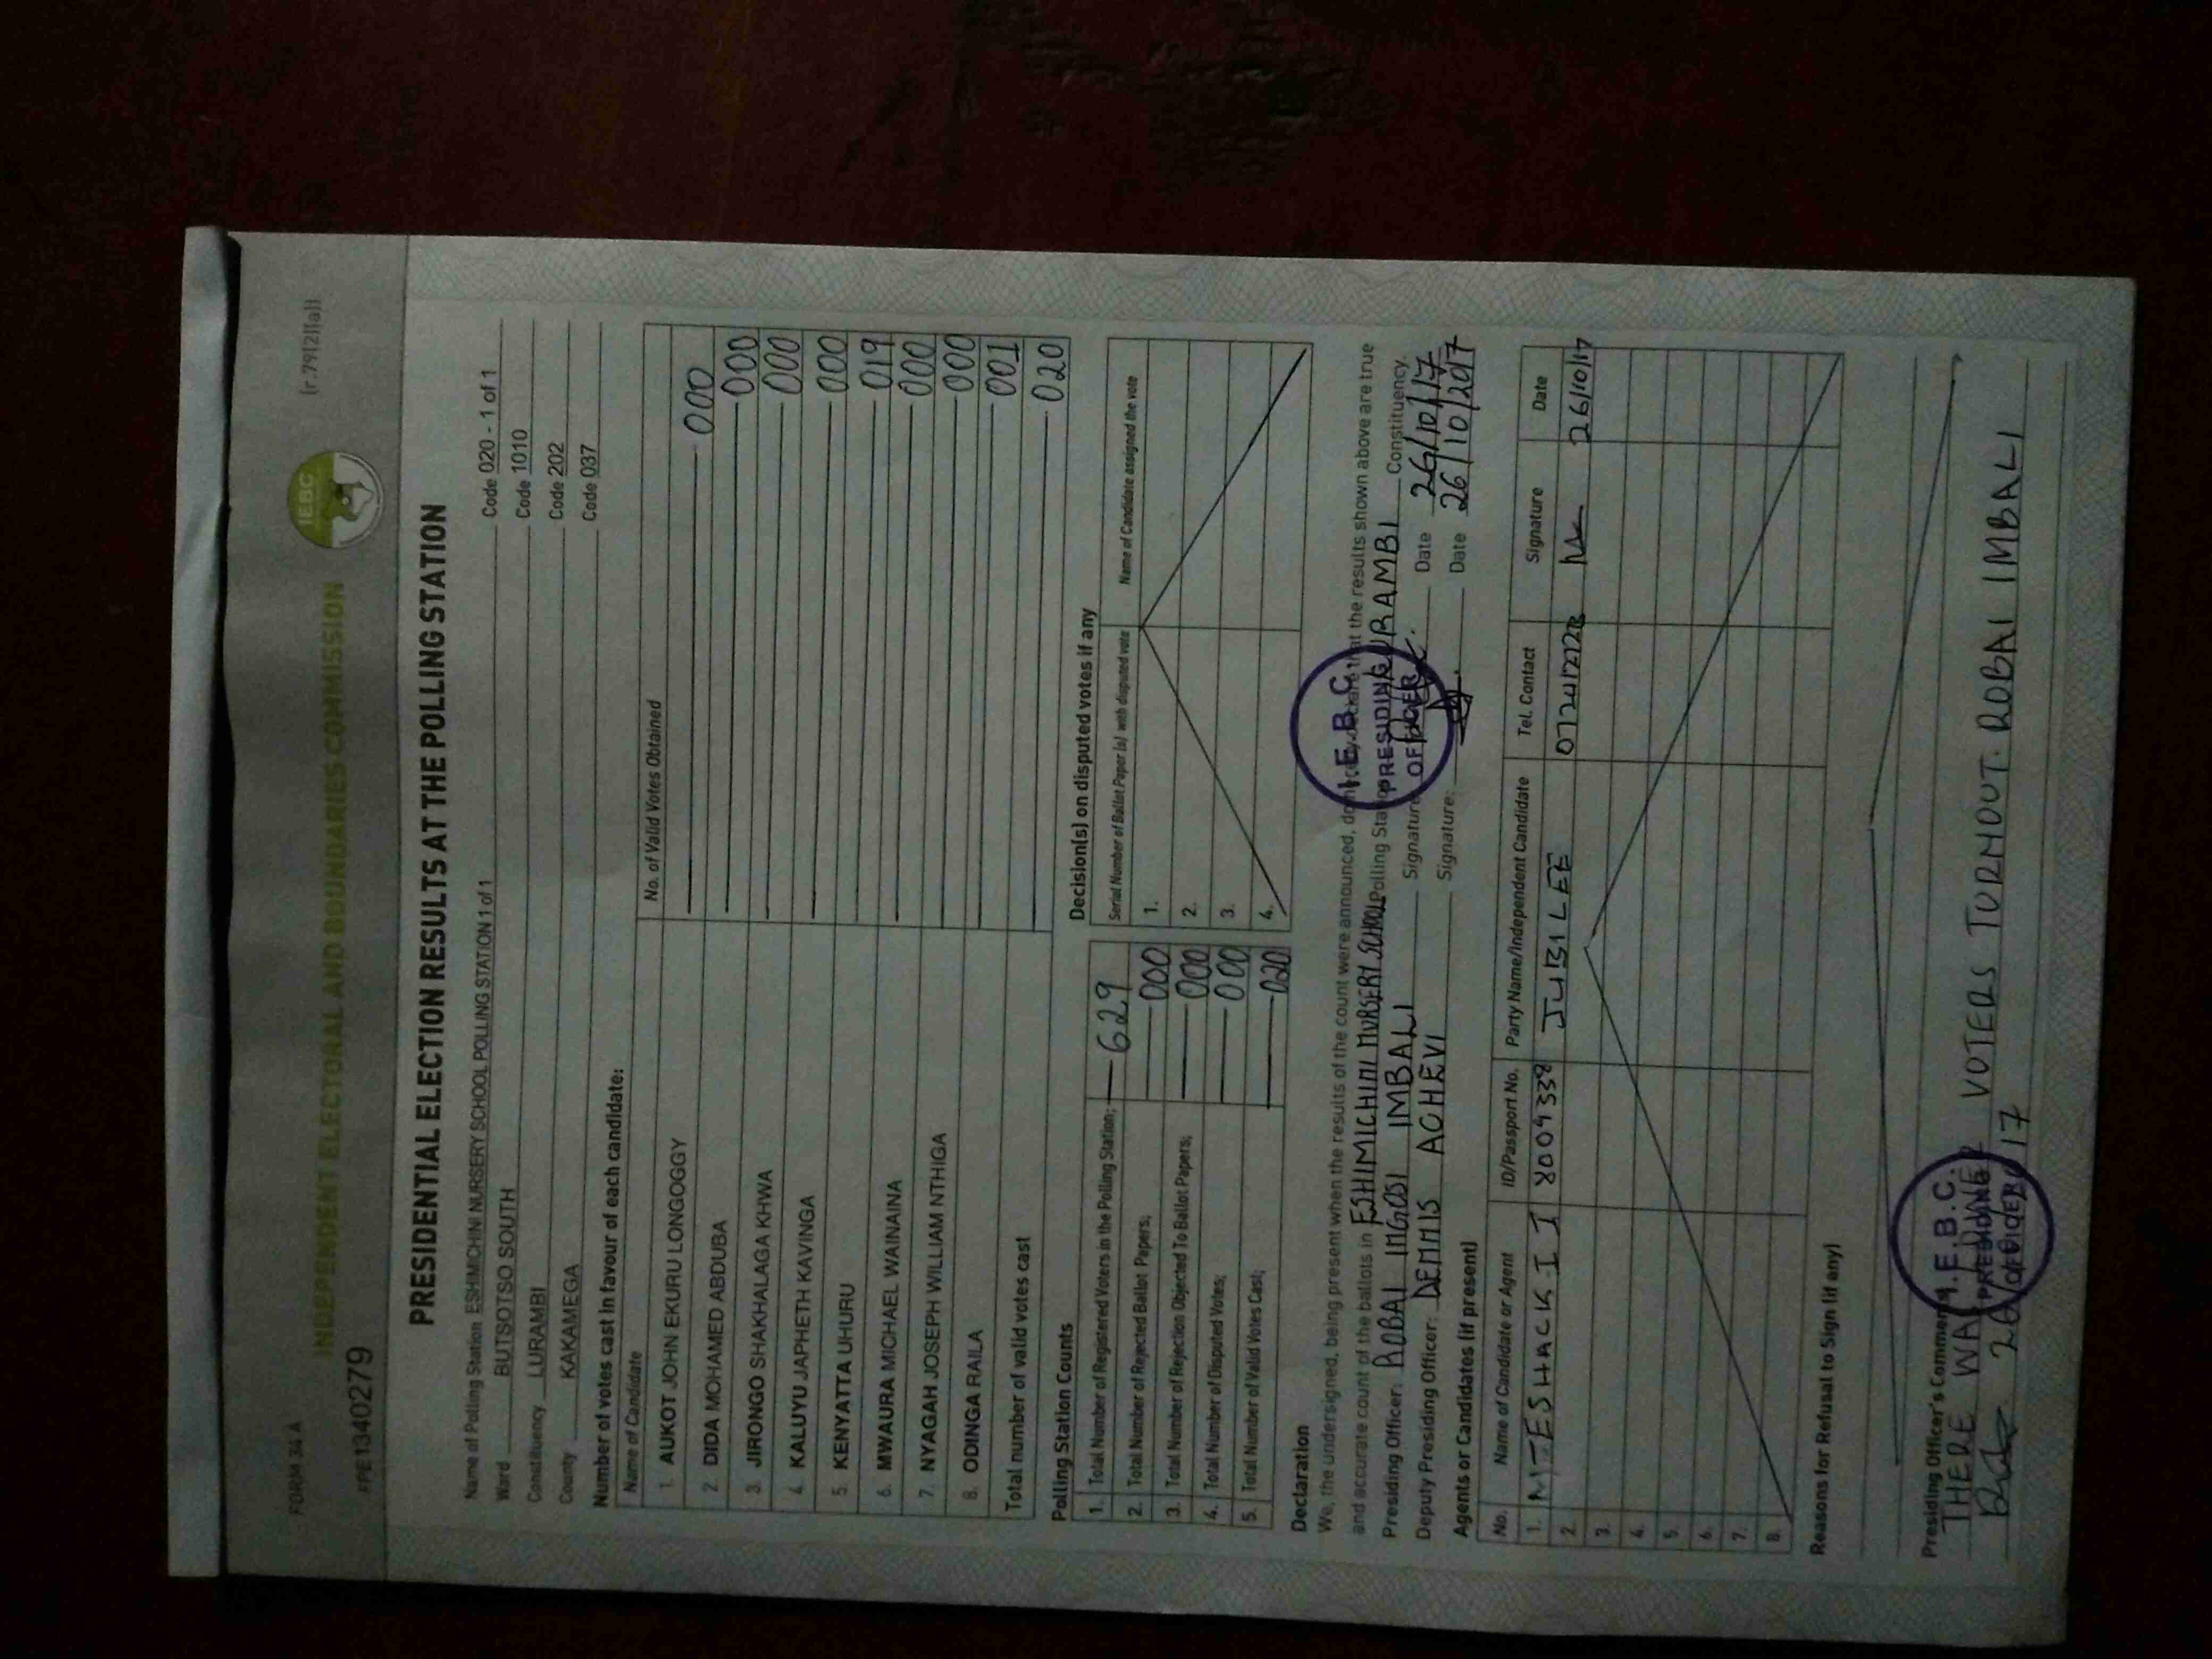 FORM 34 A
(r.79(2)(a))
IEBC
INDEPENDENT ELECTORAL AND BOUNDARIES COMMISSION
PPE1340279
PRESIDENTIAL ELECTION RESULTS AT THE POLLING STATION
Name of Polling Station ESHIMICHINI NURSERY SCHOOL POLLING STATION 1 of 1 Code 020 - 1 of 1
Ward BUTSOTSO SOUTH Code 1010
Constituency LURAMBI Code 202
County KAKAMEGA Code 037
Number of votes cast in favour of each candidate:
Name of Candidate No. of Valid Votes Obtained
1. AUKOT JOHN EKURU LONGOGGY 000
2. DIDA MOHAMED ABDUBA 000
3. JIRONGO SHAKHALAGA KHWA 000
4. KALUYU JAPHETH KAVINGA 000
5. KENYATTA UHURU 019
6. MWAURA MICHAEL WAINAINA 000
7. NYAGAH JOSEPH WILLIAM NTHIGA 000
8. ODINGA RAILA 001
Total number of valid votes cast 020
Polling Station Counts
1. Total Number of Registered Voters in the Polling Station; 629
2. Total Number of Rejected Ballot Papers; 000
3. Total Number of Rejection Objected To Ballot Papers; 000
4. Total Number of Disputed Votes; 000
5. Total Number of Valid Votes Cast; 020
Decision(s) on disputed votes if any
Serial Number of Ballot Paper (s) with disputed vote Name of Candidate assigned the vote
1.
2.
3.
4.
Declaration
We, the undersigned, being present when the results of the count were announced, do hereby declare that the results shown above are true
and accurate count of the ballots in ESHIMICHINI NURSERY SCHOOL Polling Station LURAMBI Constituency.
Presiding Officer: ROBAI INGOSI IMBALI Signature Date 26/10/17
Deputy Presiding Officer: DENNIS ACHEVI Signature: Date 26/10/2017
I.E.B.C.
PRESIDING
OFFICER
Agents or Candidates (if present)
No. Name of Candidate or Agent ID/Passport No. Party Name/Independent Candidate Tel. Contact Signature Date
1. JUBILEE 26/10/17
2.
3.
4.
5.
6.
7.
8.
Reasons for Refusal to Sign (if any)
Presiding Officer's Comments
THERE WAS VOTERS TURNOUT. ROBAI IMBALI
I.E.B.C.
PRESIDING
OFFICER